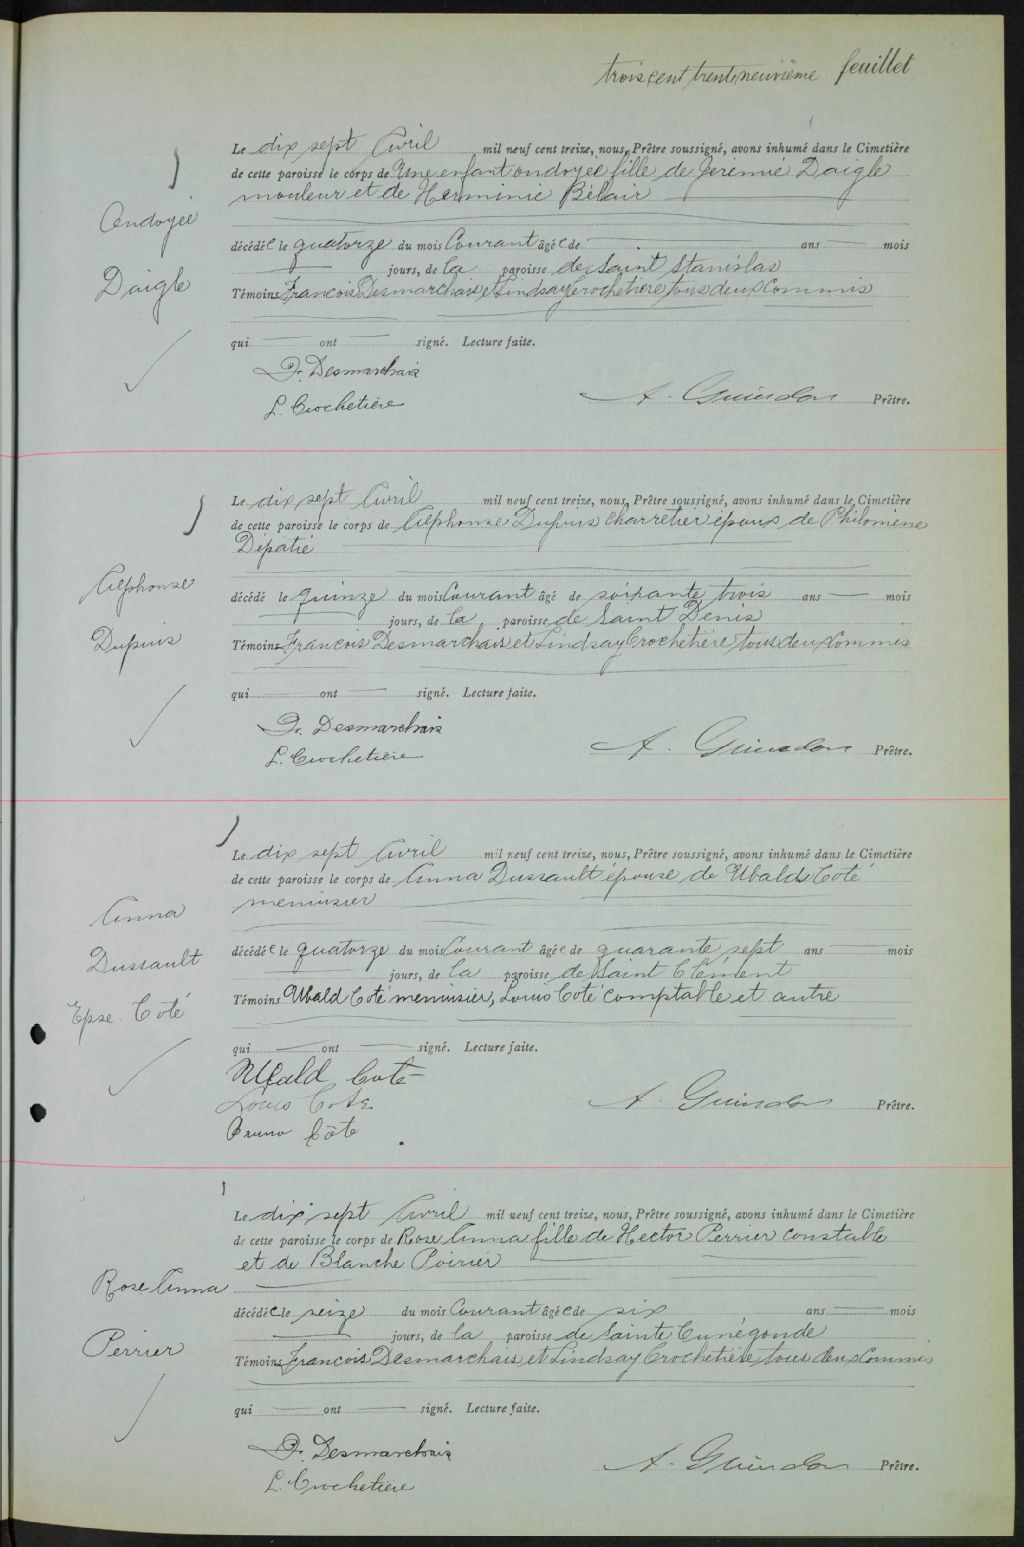 trois cent trente neuvième feuillet
Le dix sept Avril mil neuf cent treize, nous, Prêtre soussigné, avons inhumé dans le Cimetière
de cette paroisse le corps de Une enfant ondoyée fille de Jérémie Daigle
mouleur et de Herminie Bélair
Ondoyée
décédée le quatorze du mois Courant âgée de ans mois
jours, de la paroisse de Saint Stanislas
Daigle
Témoins François Desmarchais et Lindsay Crochetière tous deux Commis
qui ont signé. Lecture faite.
Fr. Desmarchais
L. Crochetière
A. Guindon Prêtre.
Le dix sept Avril mil neuf cent treize, nous, Prêtre soussigné, avons inhumé dans le Cimetière
de cette paroisse le corps de Alphonse Dupuis charretier époux de Philomène
Dépatie
Alphonse
décédé le quinze du mois Courant âgé de soixante trois ans mois
jours, de la paroisse de Saint Denis
Dupuis
Témoins François Desmarchais et Lindsay Crochetière tous deux Commis
qui ont signé. Lecture faite.
Fr. Desmarchais
L. Crochetière
A. Guindon Prêtre.
Le dix sept Avril mil neuf cent treize, nous, Prêtre soussigné, avons inhumé dans le Cimetière
de cette paroisse le corps de Anna Dussault épouse de Ubald Coté
menuisier
Anna
décédée le quatorze du mois Courant âgée de quarante sept ans mois
Dussault
jours, de la paroisse de Saint Clément
Témoins Ubald Coté menuisier, Louis Coté comptable et autre
Epse. Coté
qui ont signé. Lecture faite.
Ubald Coté
Louis Cote
Bruno Côté
A. Guindon Prêtre.
Le dix sept Avril mil neuf cent treize, nous, Prêtre soussigné, avons inhumé dans le Cimetière
de cette paroisse le corps de Rose Anna fille de Hector Perrier constable
et de Blanche Poirier
Rose Anna
décédée le seize du mois Courant âgée de six ans mois
jours, de la paroisse de Sainte Cunégonde
Perrier
Témoins François Desmarchais et Lindsay Crochetière tous deux Commis
qui ont signé. Lecture faite.
Fr. Desmarchais
L. Crochetière
A. Guindon Prêtre.